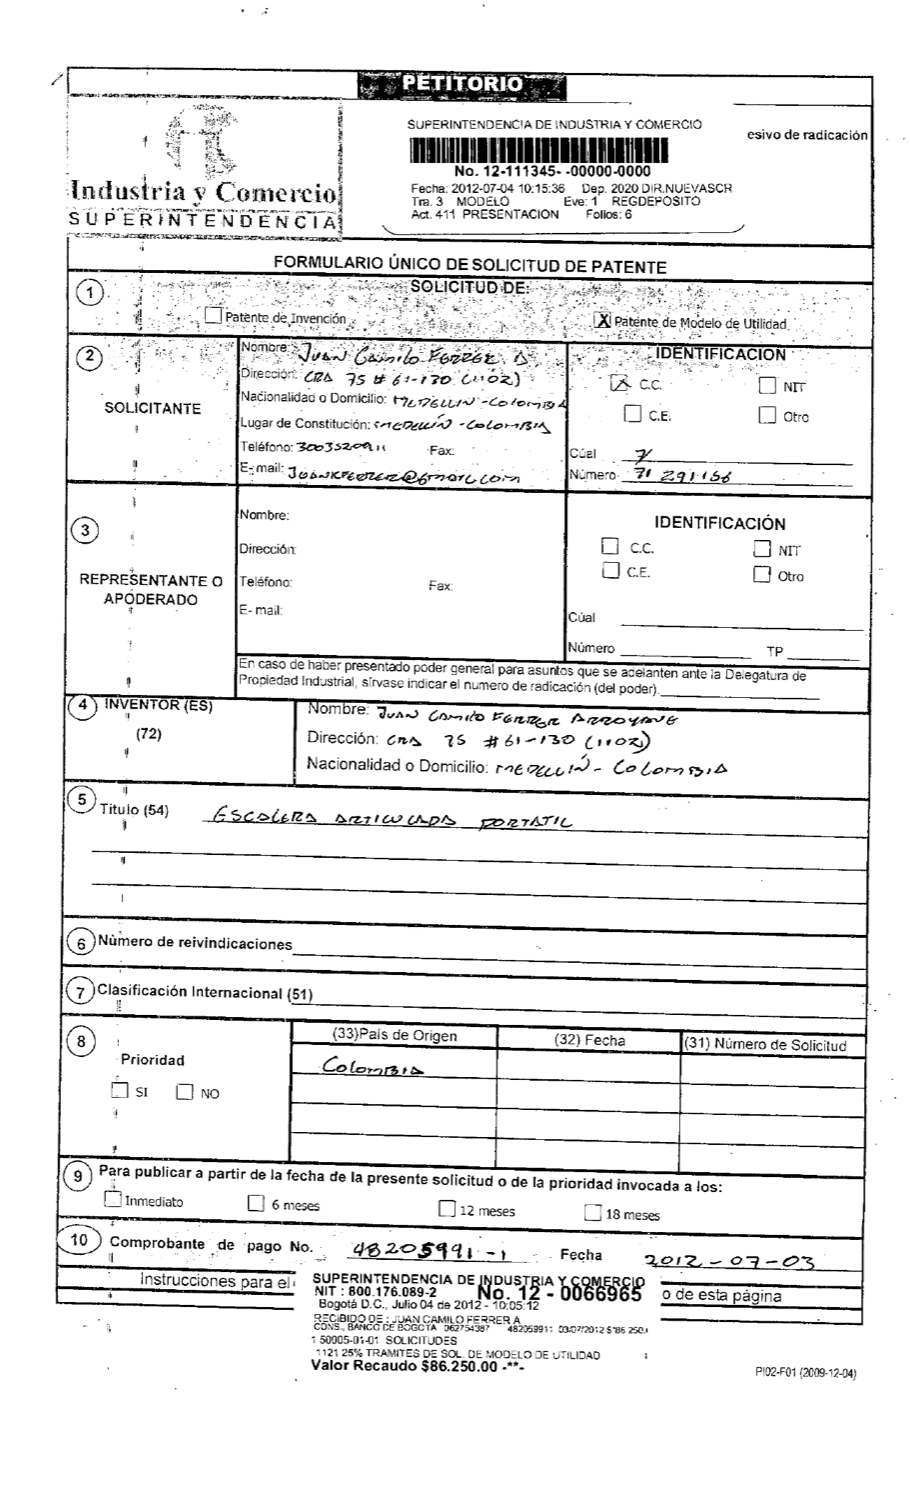 PETITORIO
Industria y Comercio
SUPERINTENDENCIA
SUPERINTENDENCIA DE INDUSTRIA Y COMERCIO
esivo de radicación
No. 12-111345- -00000-0000
Fecha: 2012-07-04 10:15:36 Dep. 2020 DIR.NUEVASCR
Tra. 3 MODELO Eve: 1 REGDEPOSITO
Act. 411 PRESENTACION Folios: 6
FORMULARIO ÚNICO DE SOLICITUD DE PATENTE
1 SOLICITUD DE:
Patente de Invención X Patente de Modelo de Utilidad
2 SOLICITANTE
Nombre: JUAN CAMILO FERRER A
Dirección: CRA 75 # 61-130 (1102)
Nacionalidad o Domicilio: MEDELLIN - COLOMBIA
Lugar de Constitución: MEDELLÍN - COLOMBIA
Teléfono: 3003520911 Fax:
E-mail: JUANKFERRER@GMAIL.COM
IDENTIFICACION
X C.C. NIT
C.E. Otro
Cúal
Número 71 291156
3 REPRESENTANTE O APODERADO
Nombre:
Dirección:
Teléfono: Fax:
E- mail:
IDENTIFICACIÓN
C.C. NIT
C.E. Otro
Cúal
Número TP
En caso de haber presentado poder general para asuntos que se adelanten ante la Delegatura de
Propiedad Industrial, sírvase indicar el numero de radicación (del poder).
4 INVENTOR (ES)
(72)
Nombre: JUAN CAMILO FERRER ARROYAVE
Dirección: CRA 75 # 61-130 (1102)
Nacionalidad o Domicilio: MEDELLÍN - COLOMBIA
5 Titulo (54) ESCALERA ARTICULADA PORTATIL
6 Número de reivindicaciones
7 Clasificación Internacional (51)
8 Prioridad
SI NO
(33)Pais de Origen (32) Fecha (31) Número de Solicitud
COLOMBIA
9 Para publicar a partir de la fecha de la presente solicitud o de la prioridad invocada a los:
Inmediato 6 meses 12 meses 18 meses
10 Comprobante de pago No. 48205991-1 Fecha 2012-07-03
Instrucciones para el o de esta página
SUPERINTENDENCIA DE INDUSTRIA Y COMERCIO
NIT : 800.176.089-2 No. 12 - 0066965
Bogotá D.C., Julio 04 de 2012 - 10:05:12
RECIBIDO DE : JUAN CAMILO FERRER A
CONS., BANCO DE BOGOTA 062754387 482059911 03/07/2012
1 50005-01-01 SOLICITUDES
1121 25% TRAMITES DE SOL. DE MODELO DE UTILIDAD
Valor Recaudo $86.250.00 -**-
PI02-F01 (2009-12-04)